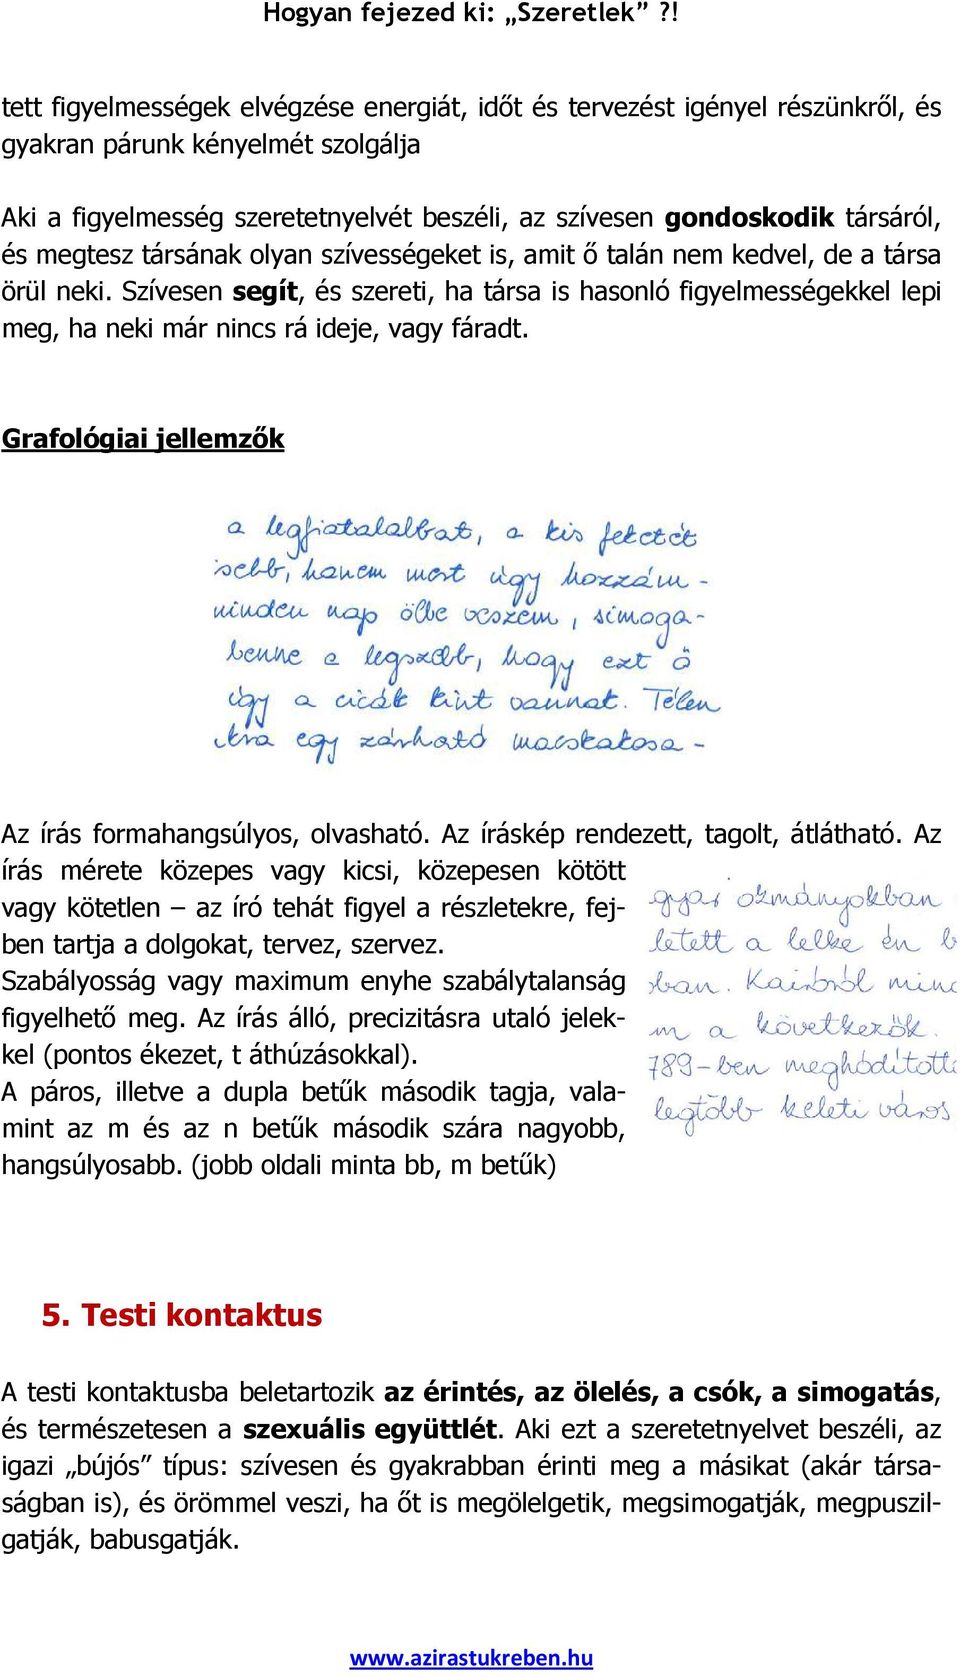 Hogyan fejezed ki: „Szeretlek”?!
tett figyelmességek elvégzése energiát, időt és tervezést igényel részünkről, és
gyakran párunk kényelmét szolgálja
Aki a figyelmesség szeretetnyelvét beszéli, az szívesen gondoskodik társáról,
és megtesz társának olyan szívességeket is, amit ő talán nem kedvel, de a társa
örül neki. Szívesen segít, és szereti, ha társa is hasonló figyelmességekkel lepi
meg, ha neki már nincs rá ideje, vagy fáradt.
Grafológiai jellemzők
a legfiatalabbat, a kis feketét
isebb, hanem most úgy hozzám-
ninden nap ölbe veszem, simoga-
benne a legszebb, hogy ezt ő
így a cicák kint vannak. Télen
egy zárható macskakosa-
Az írás formahangsúlyos, olvasható. Az íráskép rendezett, tagolt, átlátható. Az
írás mérete közepes vagy kicsi, közepesen kötött
vagy kötetlen – az író tehát figyel a részletekre, fej-
ben tartja a dolgokat, tervez, szervez.
Szabályosság vagy maximum enyhe szabálytalanság
figyelhető meg. Az írás álló, precizitásra utaló jelek-
kel (pontos ékezet, t áthúzásokkal).
A páros, illetve a dupla betűk második tagja, vala-
mint az m és az n betűk második szára nagyobb,
hangsúlyosabb. (jobb oldali minta bb, m betűk)
gyar okmányokban
letett a lelke én b
ban. Kairóról minc
m a következők.
789-ben meghódított
legtöbb keleti város
5. Testi kontaktus
A testi kontaktusba beletartozik az érintés, az ölelés, a csók, a simogatás,
és természetesen a szexuális együttlét. Aki ezt a szeretetnyelvet beszéli, az
igazi „bújós” típus: szívesen és gyakrabban érinti meg a másikat (akár társa-
ságban is), és örömmel veszi, ha őt is megölelgetik, megsimogatják, megpuszil-
gatják, babusgatják.
www.azirastukreben.hu